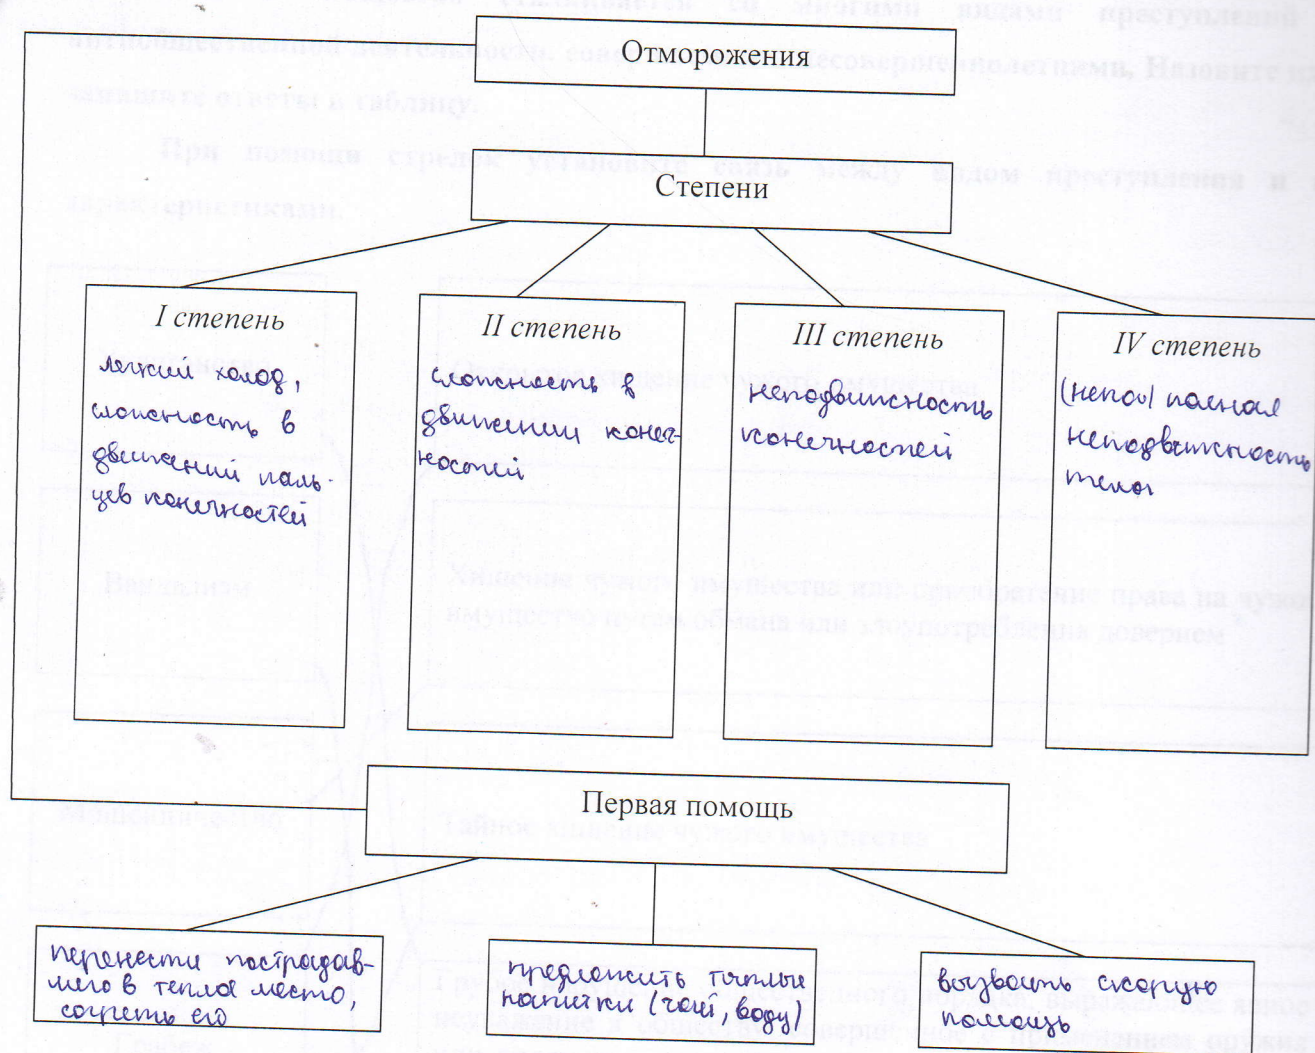 Отморожения
Степени
I степень
легкий холод,
сложность в
движений паль-
цев конечностей
II степень
сложность в
движении конеч-
ностей
III степень
неподвижность
конечностей
IV степень
(непол) полная
неподвижность
тела
Первая помощь
перенести пострадав-
шего в теплое место,
согреть его
предложить тёплые
напитки (чай, воду)
вызвать скорую
помощь